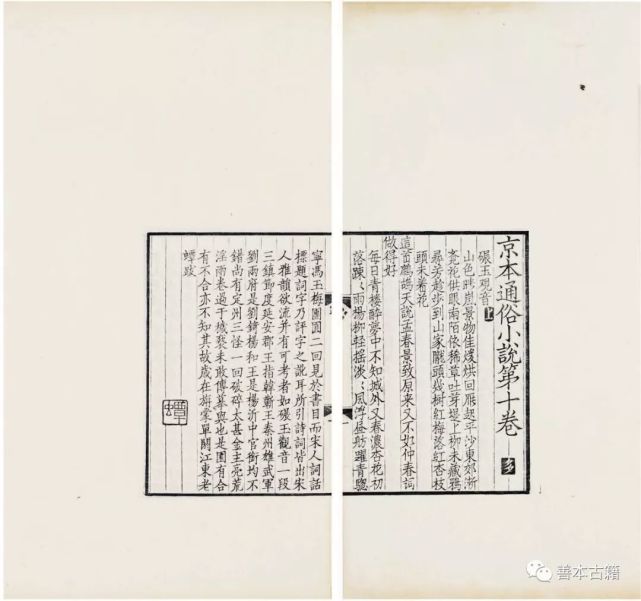 京本通俗小說第十卷
碾玉观音上
山色晴嵐景物佳煖烘回雁起平沙東郊漸
竟花供眼南陌依稀草吐芽堤上柳未藏鴉
尋芳趁步到山家隴頭幾树紅梅落紅杏枝
頭未着花
這首鷓鴣天說孟春景致原来又不如仲春詞
做得好
每日青楼醉夢中不知城外又春濃杏花初
落踈〻雨楊柳輕摇淡〻風浮畫舫躍青驄
寧馮玉梅團圓二回見於書目而宋人詞話
標題詞字乃評字之訛耳所引詩詞皆出宋
人雅韻欲流并有可考者如碾玉觀音一段
三鎮節度延安郡王指韓蘄王秦州雄武軍
劉兩府是劉錡楊和王是楊沂中官銜均不
錯尚有定州三怪一回破碎太甚金主亮荒
淫兩卷過于穢褻未敢傳摹與也是園有合
有不合亦不知其故歲在旃蒙單閼江東老
蟫跋
善本古籍